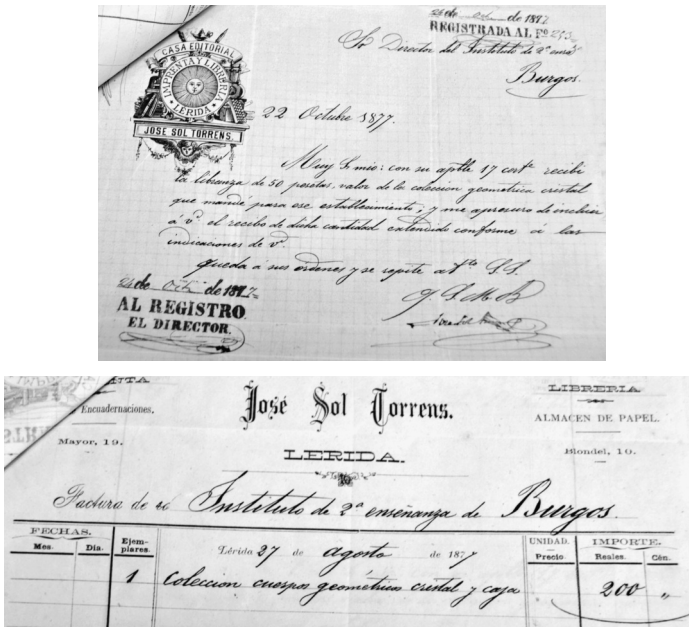 CASA EDITORIAL
IMPRENTA Y LIBRERIA
LÉRIDA
JOSE SOL TORRENS.
24 de Octe. de 1877
REGISTRADA AL Fº 293
Sr Director del Instituto de 2ª ensª
Burgos.
22 Octubre 1877.
Muy S. mio: con su aptble 17 corte recibi
la libranza de 50 pesetas, valor de la coleccion geometrica cristal
que mandé para ese establecimiento; y me apresuro de incluir
á V. el recibo de dicha cantidad extendido conforme á las
indicaciones de V.
Queda á sus ordenes y se repite afto S. S.
Q. S. M. B
24 de Octe. de 1877.
AL REGISTRO
EL DIRECTOR.
Encuadernaciones.
Mayor, 19.
José Sol Torrens.
LERIDA.
LIBRERIA
ALMACEN DE PAPEL.
Blondel, 10.
Factura de Instituto de 2ª enseñanza de Burgos.
FECHAS.
Mes. Dia.
Ejemplares.
Lérida 27 de agosto de 1877
UNIDAD.
Precio
IMPORTE.
Reales. Cén.
1 Coleccion cuerpos geométricos cristal y caja 200 "